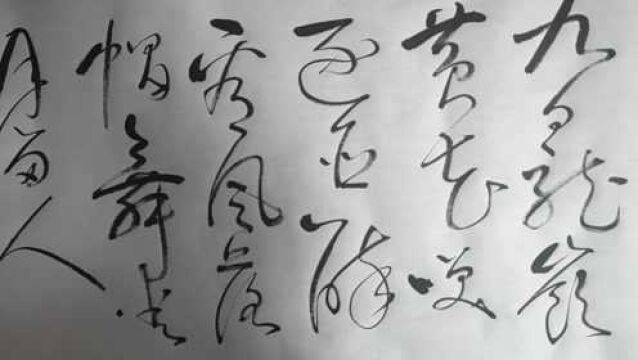 九日龍山飲
黄花笑
逐臣醉
看風落
帽舞愛
月留人